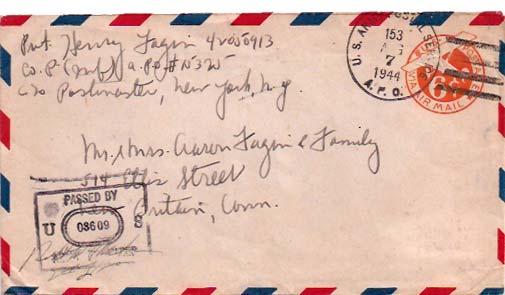 Pvt. Henry Fagin 42050913
Co. P (Inf.) A.P.O # 15325
c/o Postmaster, New York, N.Y.
U.S. ARMY POSTAL SERVICE
153
AUG
7
1944
A.P.O.
VIA AIR MAIL
6¢
Mr. & Mrs. Aaron Fagin & Family
514 Ellis Street
New Britain, Conn.
PASSED BY
U 03609 S